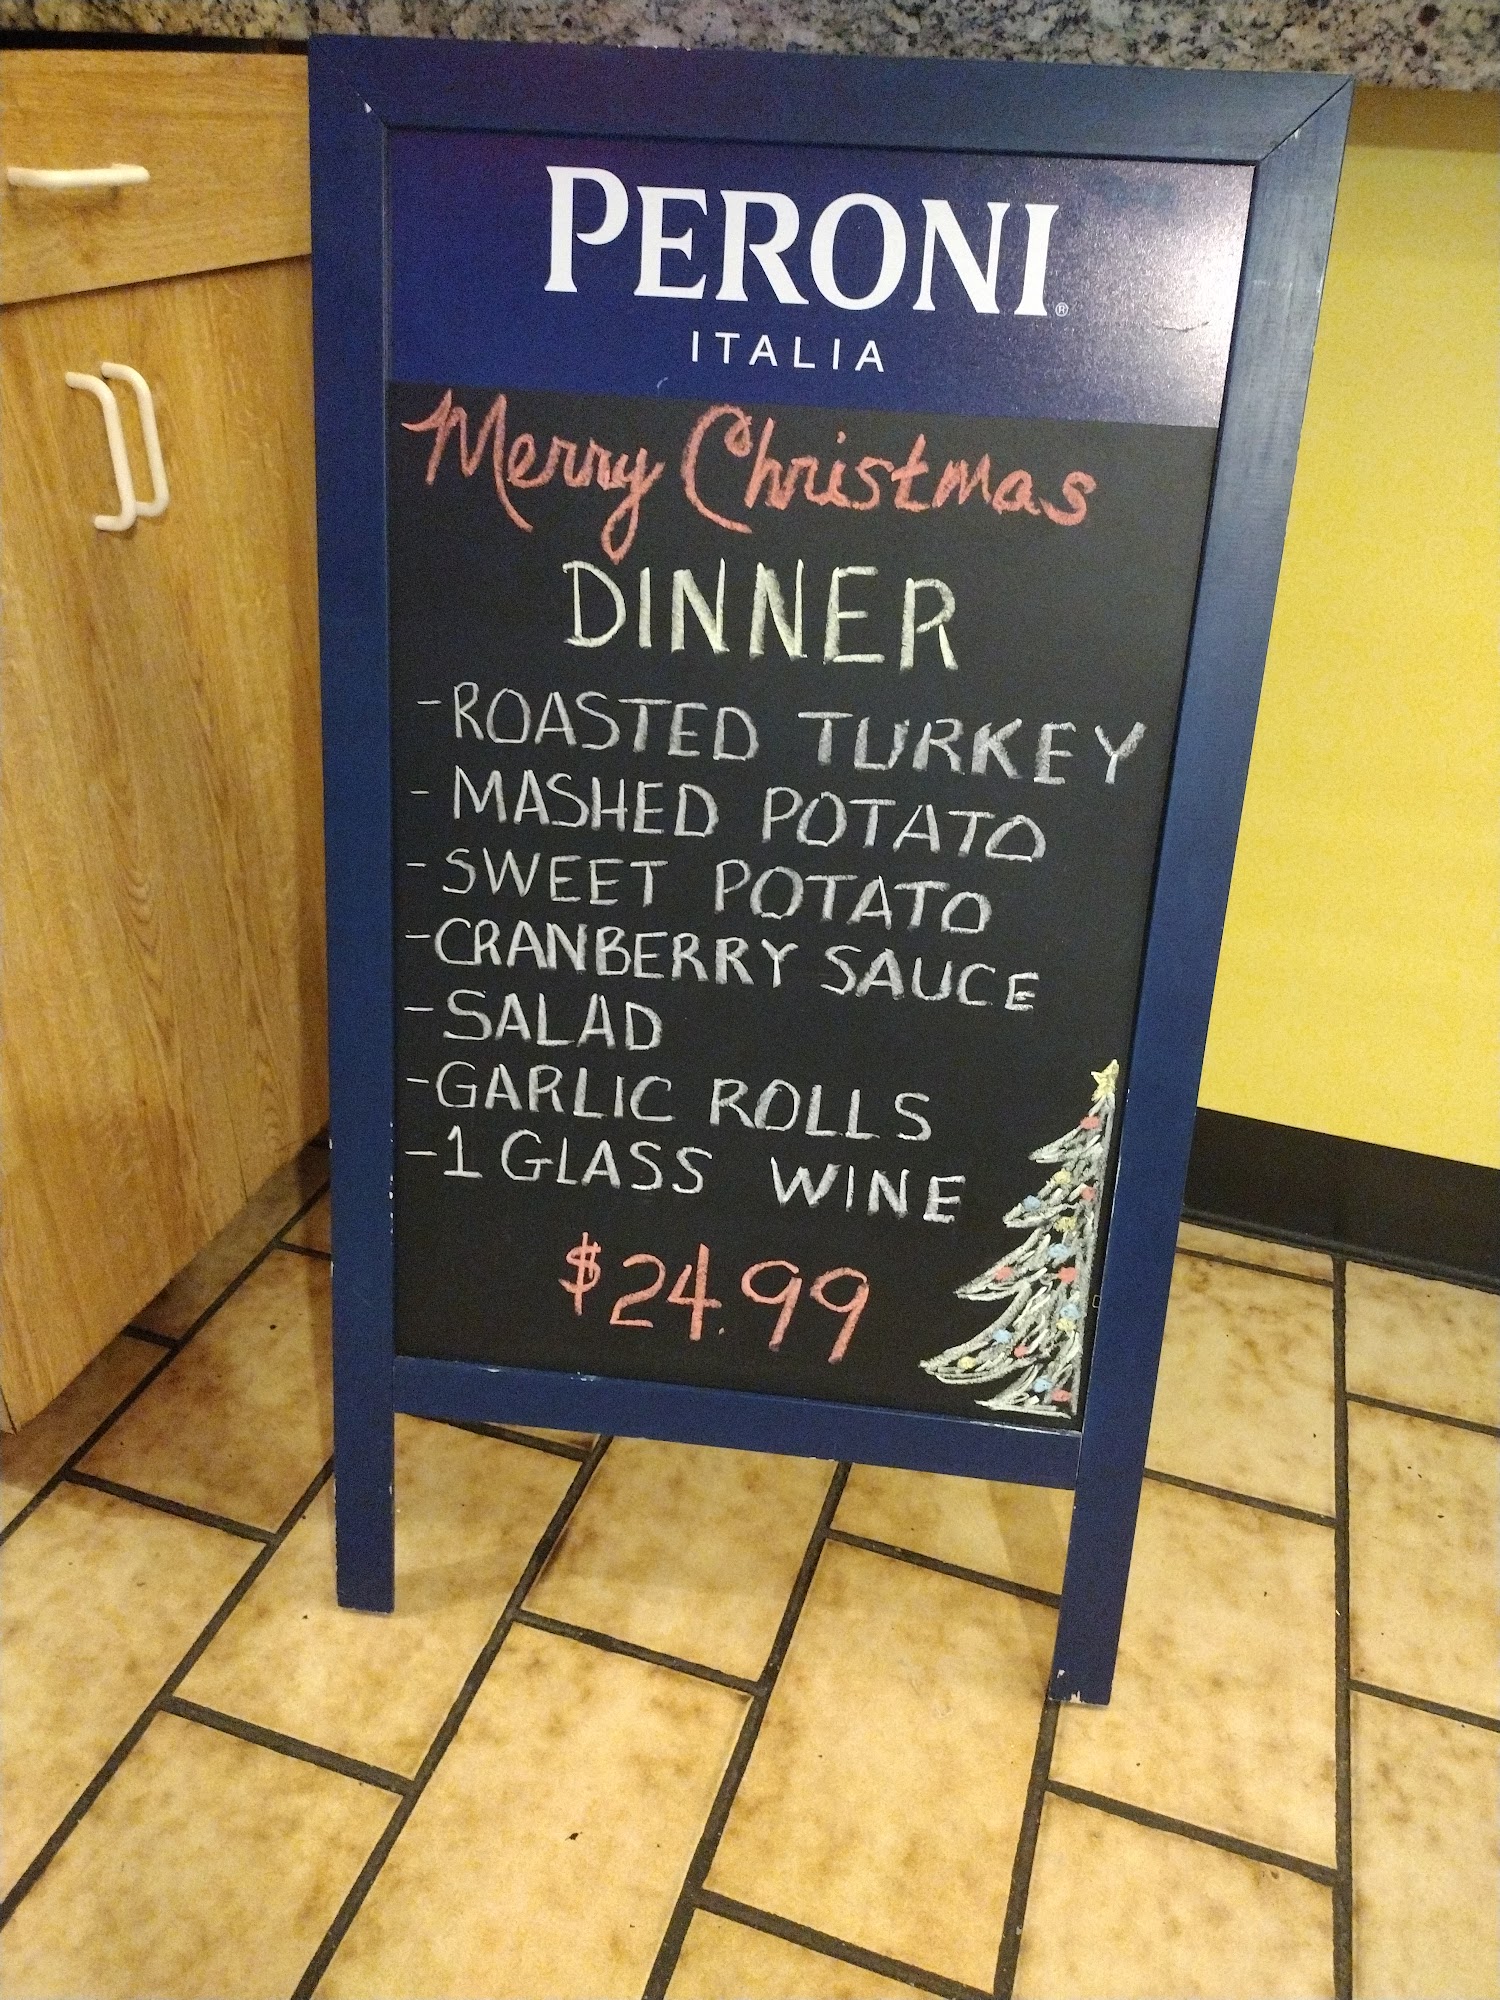 PERONI®
ITALIA
Merry Christmas
DINNER
-ROASTED TURKEY
- MASHED POTATO
-SWEET POTATO
-CRANBERRY SAUCE
-SALAD
-GARLIC ROLLS
-1 GLASS WINE
$24.99